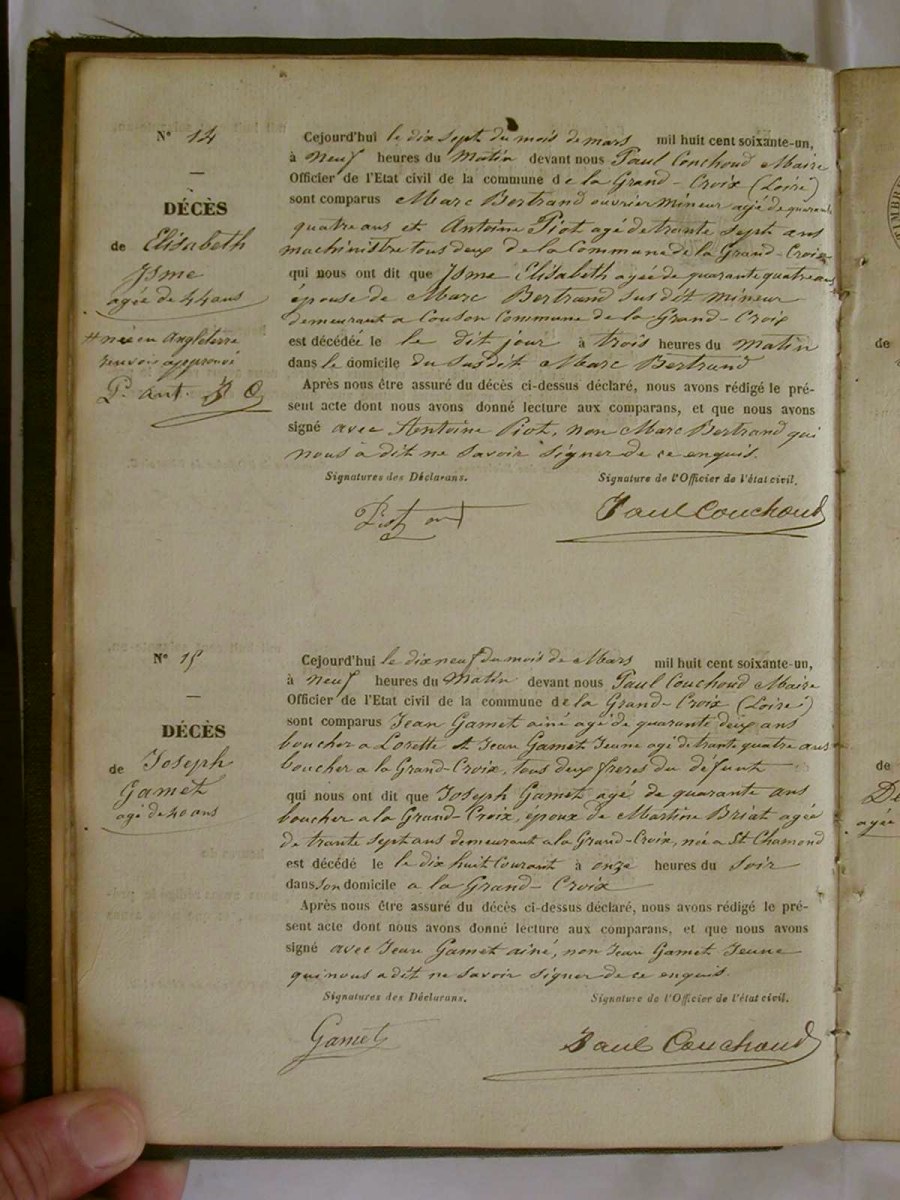 N° 14
DÉCÈS
de Elisabeth
Isme
agée de 44 ans
# née en Angleterre
renvois approuvé
P. ant.
Cejourd'hui le dix sept du mois de mars mil huit cent soixante-un,
à neuf heures du Matin devant nous Paul Couchoud Maire
Officier de l'Etat civil de la commune de la Grand-Croix (Loire)
sont comparus Marc Bertrand ouvrier mineur agé de quarante
quatre ans et Antoine Piot agé de trante sept ans
machinistre tous deux de la Commune de la Grand-Croix
qui nous ont dit que Isme Elisabeth agée de quarante quatre ans
épouse de Marc Bertrand susdit mineur
demeurant a Couson Commune de la Grand-Croix
est décédée le le dit jour à trois heures du Matin
dans le domicile du susdit Marc Bertrand
Après nous être assuré du décès ci-dessus déclaré, nous avons rédigé le pré-
sent acte dont nous avons donné lecture aux comparans, et que nous avons
signé avec Antoine Piot, non Marc Bertrand qui
nous a dit ne savoir signer de ce enquis.
Signatures des Déclarans. Signature de l'Officier de l'état civil.
Piot ant Paul Couchoud
N° 15
DÉCÈS
de Joseph
Gamet
agé de 40 ans
Cejourd'hui le dix neuf du mois de Mars mil huit cent soixante-un,
à neuf heures du Matin devant nous Paul Couchoud Maire
Officier de l'Etat civil de la commune de la Grand-Croix (Loire)
sont comparus Jean Gamet ainé agé de quarante deux ans
boucher a Lorette et Jean Gamet Jeune agé de trante quatre ans
boucher a la Grand-Croix, tous deux freres du défunt
qui nous ont dit que Joseph Gamet agé de quarante ans
boucher a la Grand-Croix, époux de Martine Briat agée
de trante sept ans demeurant a la Grand-Croix, née a St Chamond
est décédé le le dix huit Courant à onze heures du Soir
dans son domicile a la Grand-Croix
Après nous être assuré du décès ci-dessus déclaré, nous avons rédigé le pré-
sent acte dont nous avons donné lecture aux comparans, et que nous avons
signé avec Jean Gamet ainé, non Jean Gamet Jeune
qui nous a dit ne savoir signer de ce enquis.
Signatures des Déclarans. Signature de l'Officier de l'état civil.
Gamet Paul Couchoud
de
de
agée